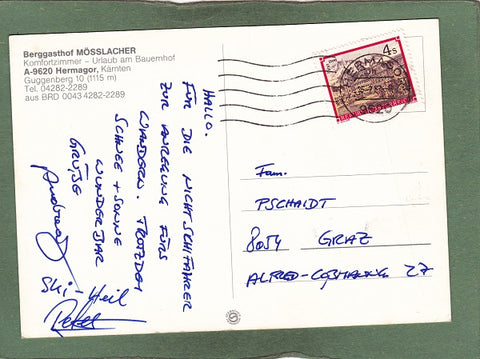 Berggasthof MÖSSLACHER
Komfortzimmer – Urlaub am Bauernhof
A-9620 Hermagor, Kärnten
Guggenberg 10 (1115 m)
Tel. 04282-2289
aus BRD 0043 4282-2289
HALLO.
FÜR DIE NICHT-SCHIFAHRER
ZUR ANREGUNG FÜRS
WANDERN. TROTZDEM
SCHNEE + SONNE
WUNDERBAR
GRÜSSE
Ski-Heil
Peter
4s
HERMAGOR
9620
Fam.
PSCHAIDT
8054 GRAZ
ALFRED- 27